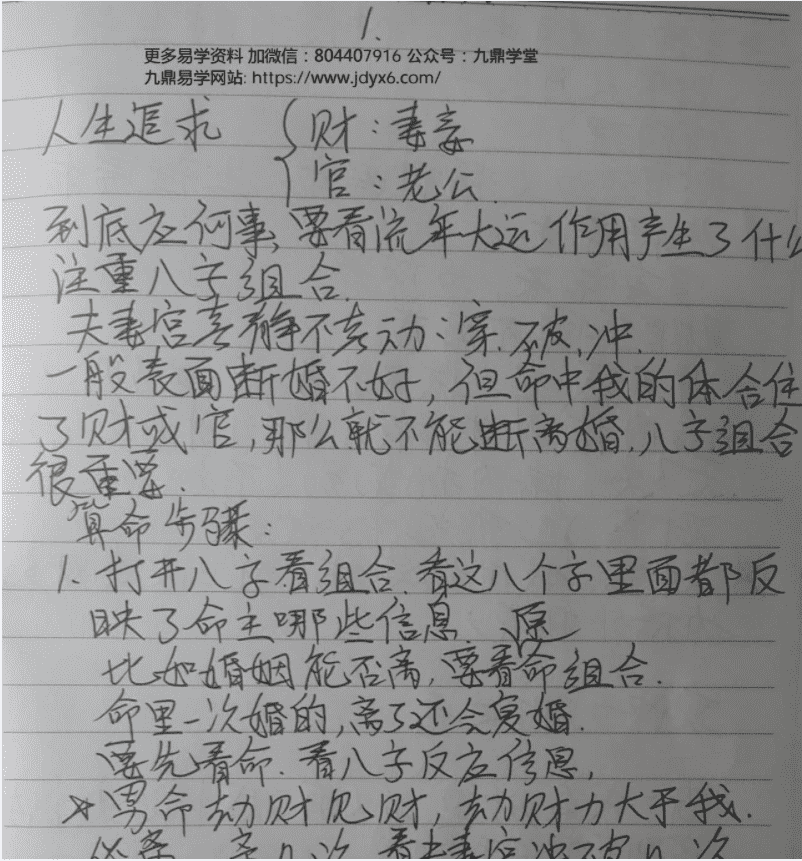 1.
更多易学资料 加微信：804407916 公众号：九鼎学堂
九鼎易学网站: https://www.jdyx6.com/
人生追求 { 财：妻妾
官：老公.
到底应何事、要看流年大运作用产生了什么
注重八字组合.
夫妻宫喜静不喜动：穿.破.冲.
一般表面断婚不好，但命中我的体合住
了财或官，那么就不能断离婚.八字组合
很重要.
算命步骤：
1. 打开八字看组合.看这八个字里面都反
映了命主哪些信息.
比如婚姻能否离，要看原命组合.
命里一次婚的，离了还会复婚.
要先看命.看八字反应信息，
男命劫财见财，劫财力大于我.